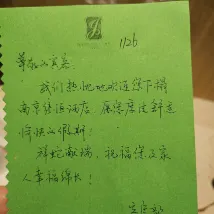 1126
尊敬的宾客:
我们热忱地欢迎您下榻
南京绿
酒店,愿您度过舒适
愉快的假期!
祥蛇献瑞,祝福您及家
人幸福绵长!